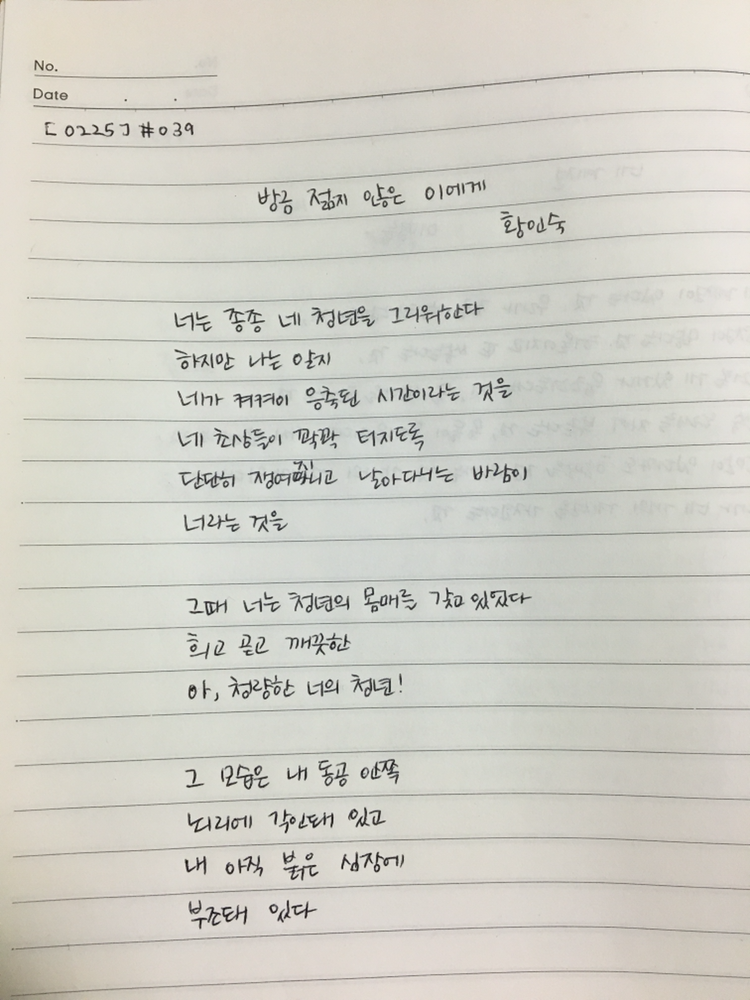 No.
Date . .
[0225] #039
방금 젊지 않은 이에게
황인숙
너는 종종 네 청년을 그리워한다
하지만 나는 알지
네가 켜켜이 응축된 시간이라는 것을
네 초상들이 꽉꽉 터지도록
단단히 쟁여지고 날아다니는 바람이
너라는 것을
그때 너는 청년의 몸매를 갖고 있었다
희고 곧고 깨끗한
아, 청량한 너의 청년!
그 모습은 내 동공 안쪽
뇌리에 각인돼 있고
내 아직 붉은 심장에
부조돼 있다